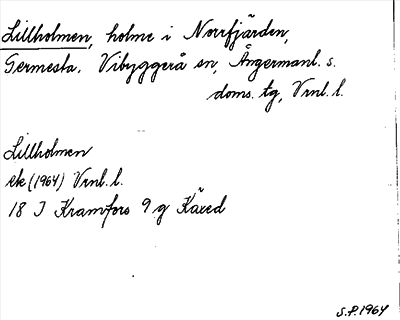 Lillholmen, holme i Norrfjärden,
Germesta. Vibyggerå sn, Ångermanl. s.
doms. tg, Vrnl. l.
Lillholmen
ek (1964) Vrnl. l.
18 I Kramfors 9 g Käxed
S.P. 1964